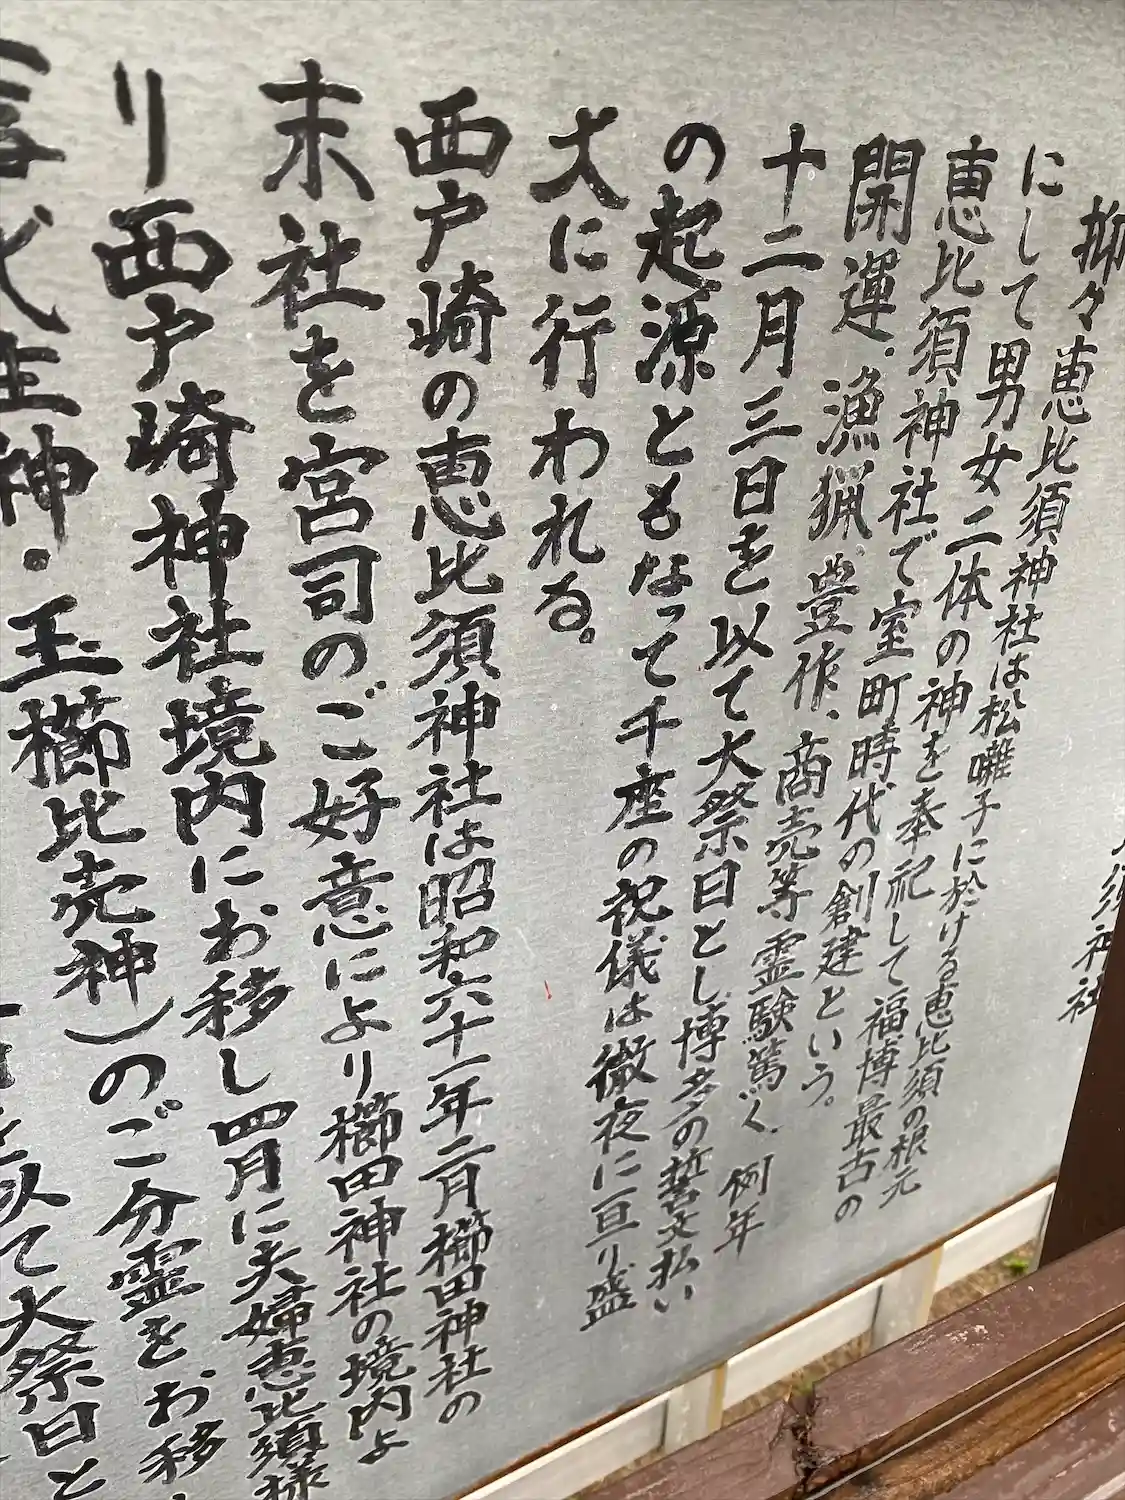 須神社
抑々恵比須神社は松囃子に於ける恵比須の根元
にして男女二体の神を奉祀して福博最古の
恵比須神社で室町時代の創建という。
開運、漁猟、豊作、商売等霊験篤く、例年
十二月三日を以て大祭日とし博多の誓文払い
の起源ともなって千座の祝儀は徹夜に亘り盛
大に行われる。
西戸崎の恵比須神社は昭和六十一年二月櫛田神社の
末社を宮司のご好意により櫛田神社の境内よ
り西戸崎神社境内にお移し四月に夫婦恵比須様
代主神・玉櫛比売神)のご分霊をお移
を以て大祭日と